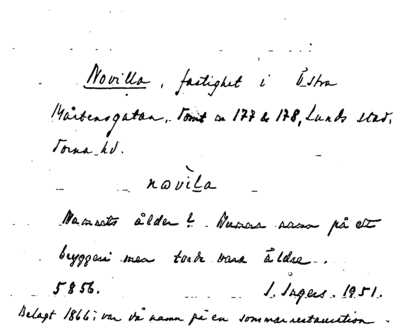 Novilla, fastighet i Östra
Mårtensgatan. Tomt nr 177 & 178, Lunds stad.
Torna hd.
novìla
Namnets ålder? Numera namn på ett
bryggeri men torde vara äldre.
5856. I. Ingers. 1951.
Belagt 1866; var då namn på en sommarrestauration.